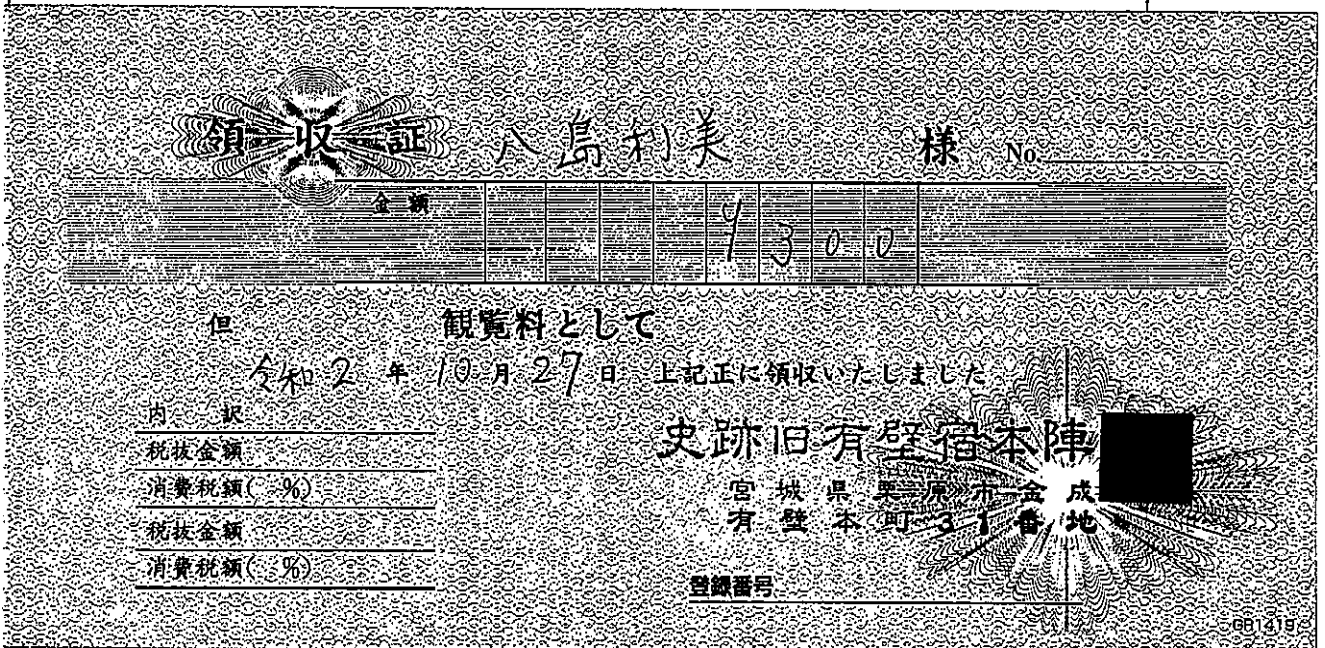 領収証 八島利美 様 No.
金額 ¥300
但 観覧料として
令和2年10月27日 上記正に領収いたしました
内訳
税抜金額
消費税額( %)
税抜金額
消費税額( %)
史跡旧有壁宿本陣
宮城県栗原市金成
有壁本町31番地
登録番号
GB1419